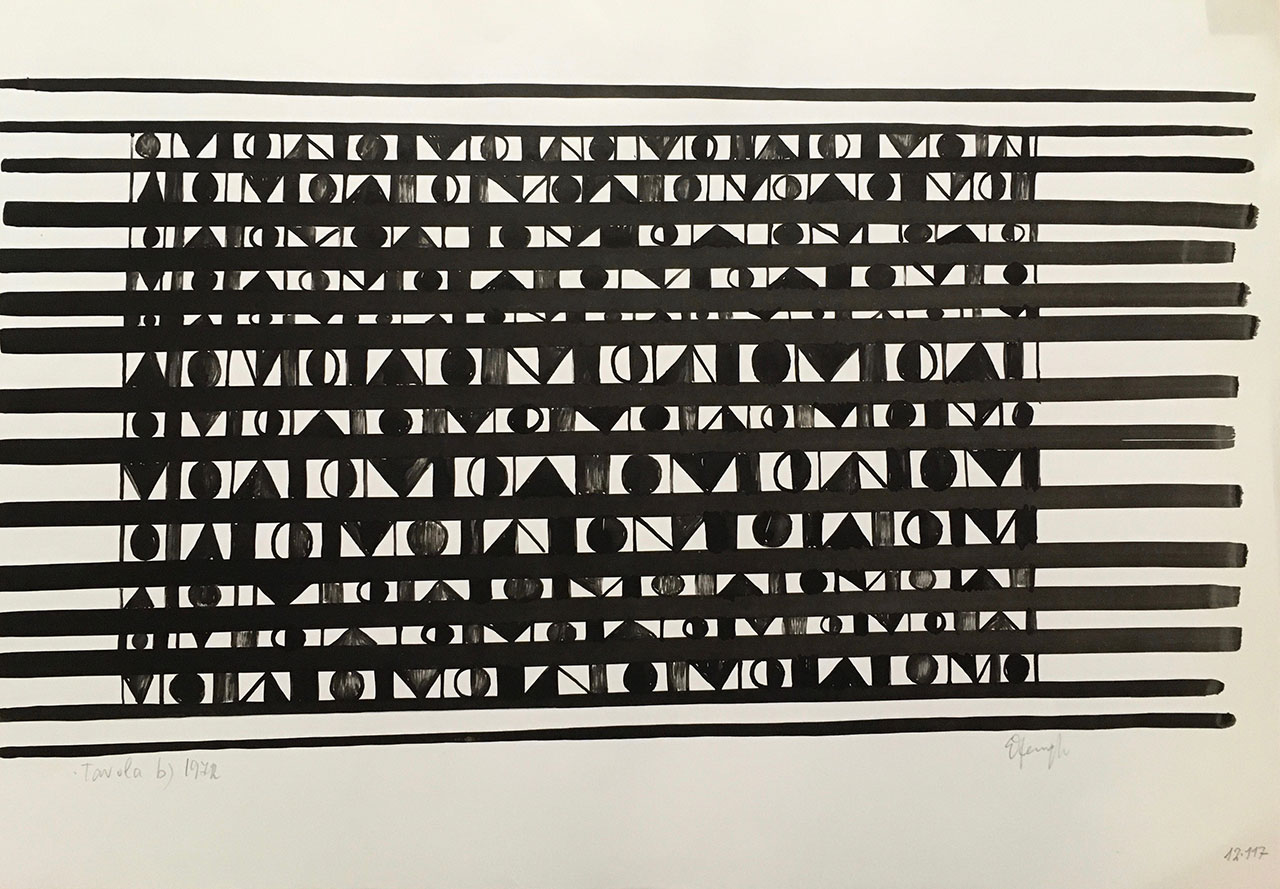 . Tavola b) 1972
12.117